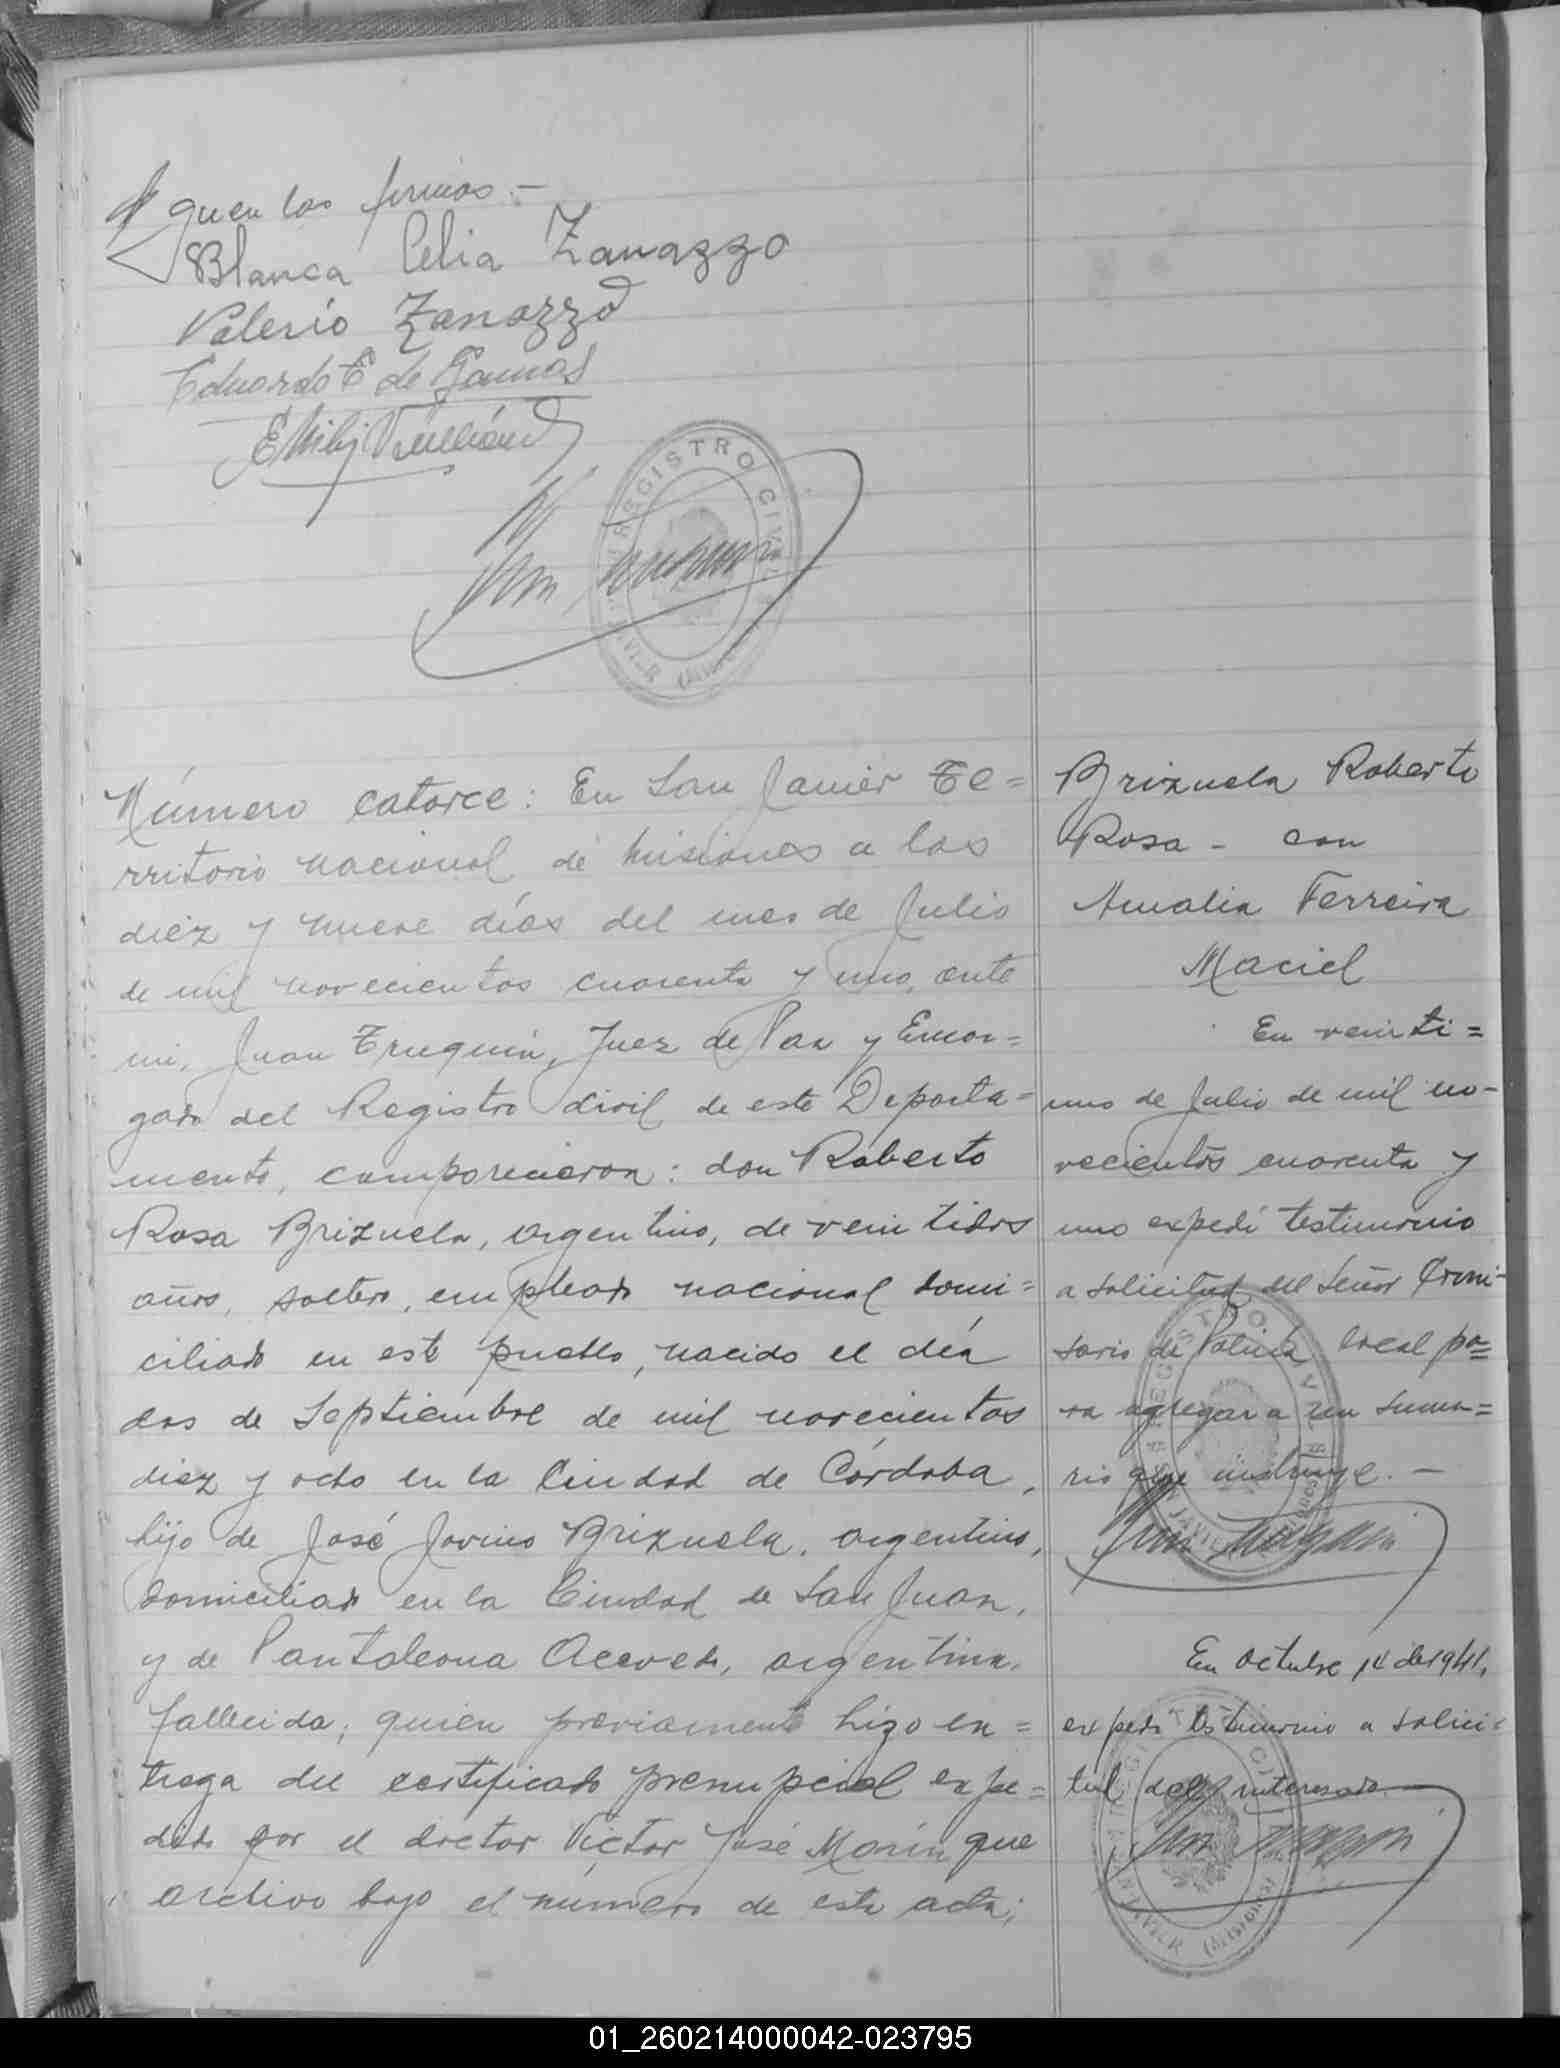 Siguen las firmas.-
Blanca Celia Zanazzo
Valerio Zanazzo
Eduardo E de
REGISTRO CIVIL
Número catorce: En San Javier Te=
rritorio nacional de Misiones a los
diez y nueve días del mes de Julio
de mil novecientos cuarenta y uno, ante
mi, Juan Truquin, Juez de Paz y Encar=
gado del Registro Civil de este Departa=
mento, comparecieron: don Roberto
Rosa Brizuela, argentino, de veintidos
años, soltero, empleado nacional domi=
ciliado en este pueblo, nacido el día
dos de Septiembre de mil novecientos
diez y ocho en la Ciudad de Córdoba,
hijo de José Jovino Brizuela, argentino,
domiciliado en la Ciudad de San Juan,
y de Pantaleona Acevedo, argentina,
fallecida; quien previamente hizo en=
trega del certificado prenupcial expe=
dido por el doctor Victor José Marin que
archivo bajo el número de esta acta;
Brizuela Roberto
Rosa - con
Amalia Ferreira
Maciel
En veinti=
uno de Julio de mil no-
vecientos cuarenta y
uno expedí testimonio
a solicitud del Señor Comi-
sario de Policía local pa=
ra agregar a un suma=
rio que instruye.-
En Octubre 14 de 1941,
expedi testimonio a solici-
tud del interesado.
01_260214000042-023795